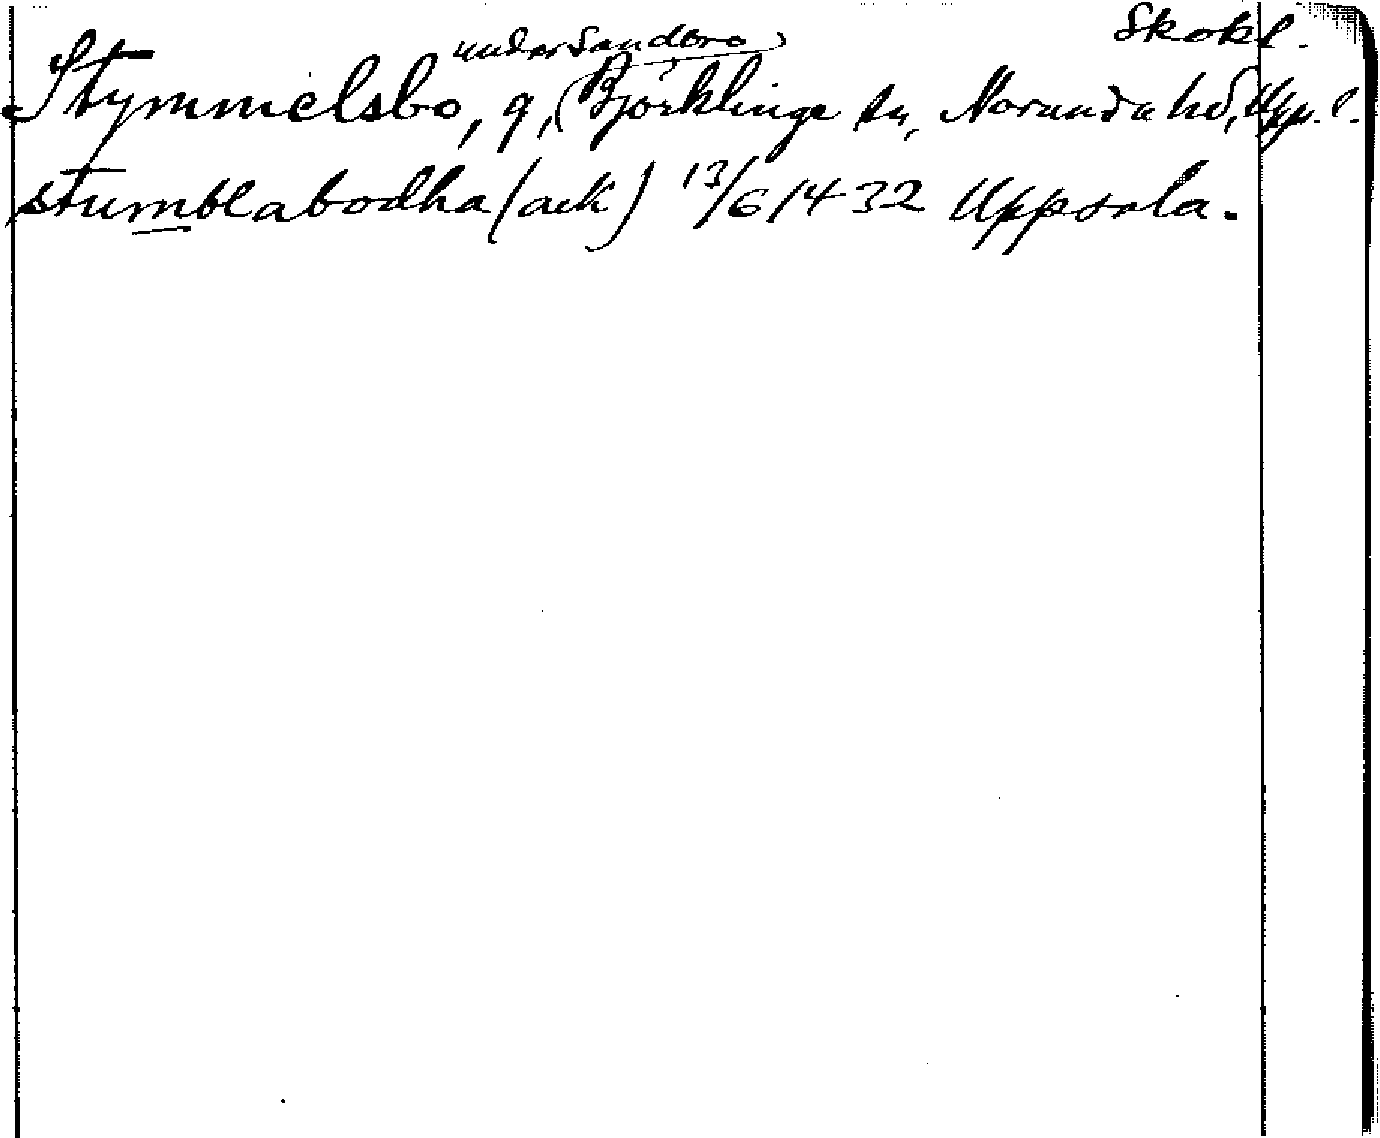 Skokl.
under Sandbro)
Stymmelsbo, g, (Björklinge sn, Norunda hd, Uppl.
stumblabodha (ack) 13/6 1432 Uppsala.